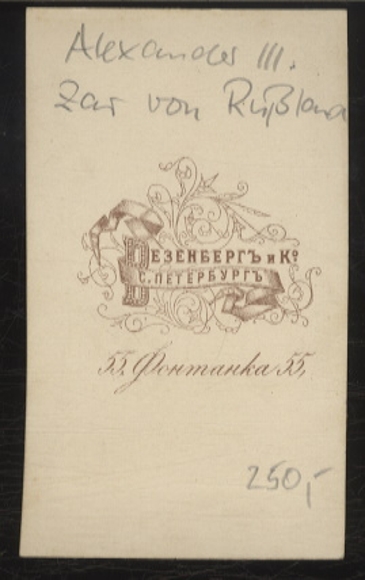 Alexander III.
Zar von Rußland
ВЕЗЕНБЕРГЪ и К°
С. ПЕТЕРБУРГЪ
55, Фонтанка 55,
250,-